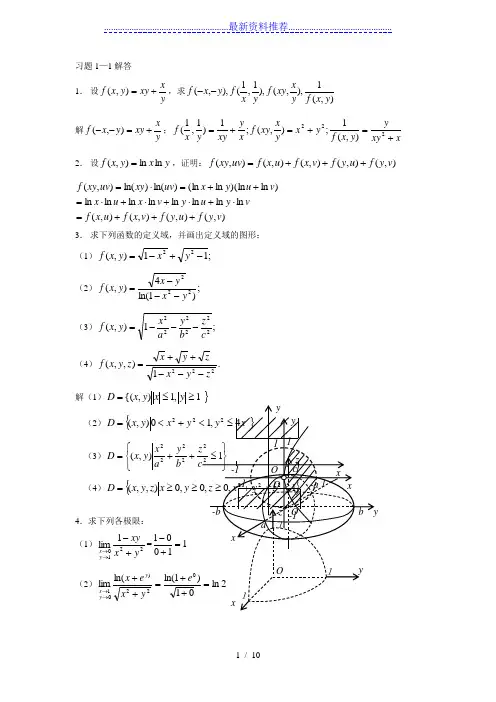 ............................................................最新资料推荐............................................................
习题1—1解答
1. 设 f(x, y) = xy + x/y，求 f(-x,-y), f(1/x, 1/y), f(xy, x/y), 1/f(x, y)
解 f(-x,-y) = xy + x/y; f(1/x, 1/y) = 1/xy + y/x; f(xy, x/y) = x² + y²; 1/f(x, y) = y/(xy² + x)
2. 设 f(x, y) = ln x ln y，证明：f(xy, uv) = f(x, u) + f(x, v) + f(y, u) + f(y, v)
f(xy, uv) = ln(xy)·ln(uv) = (ln x + ln y)(ln u + ln v)
= ln x·ln u + ln x·ln v + ln y·ln u + ln y·ln v
= f(x, u) + f(x, v) + f(y, u) + f(y, v)
3. 求下列函数的定义域，并画出定义域的图形：
(1) f(x, y) = √(1 - x²) + √(y² - 1);
(2) f(x, y) = √(4x - y²) / ln(1 - x² - y²);
(3) f(x, y) = √(1 - x²/a² - y²/b² - z²/c²);
(4) f(x, y, z) = (√x + √y + √z) / √(1 - x² - y² - z²).
解（1）D = {(x, y) |x| ≤ 1, |y| ≥ 1 }
（2）D = {(x, y) 0 < x² + y² < 1, y² ≤ 4x}
（3）D = {(x, y) x²/a² + y²/b² + z²/c² ≤ 1}
（4）D = {(x, y, z) x ≥ 0, y ≥ 0, z ≥ 0,
4．求下列各极限：
（1）lim x→0 y→1 (1 - xy)/(x² + y²) = (1 - 0)/(0 + 1) = 1
（2）lim x→1 y→0 ln(x + e^y)/√(x² + y²) = ln(1 + e⁰)/√(1 + 0) = ln 2
y
y
1
1
-1
O
x
x
-b
a
b
y
x
O
1
y
1
x
1 / 10